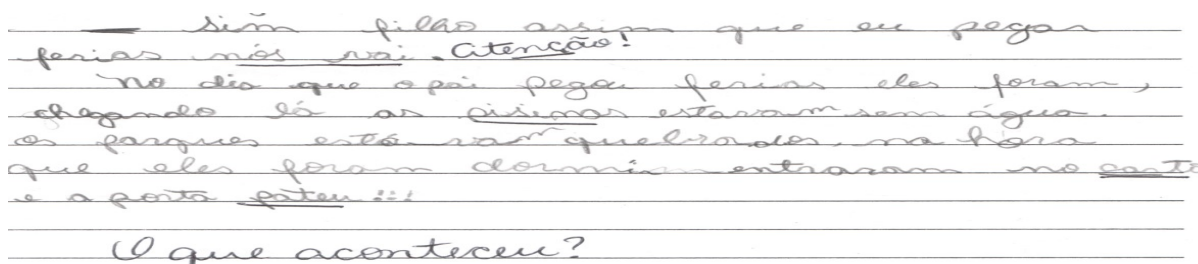 — Sim filho assim que eu pegar
ferias nós vai. Atenção!
No dia que o pai pegou ferias eles foram,
chegando lá as pisinas estavam sem água.
os parques estavam quebrados, na hora
que eles foram dormir entraram no
e a porta bateu :::
O que aconteceu?